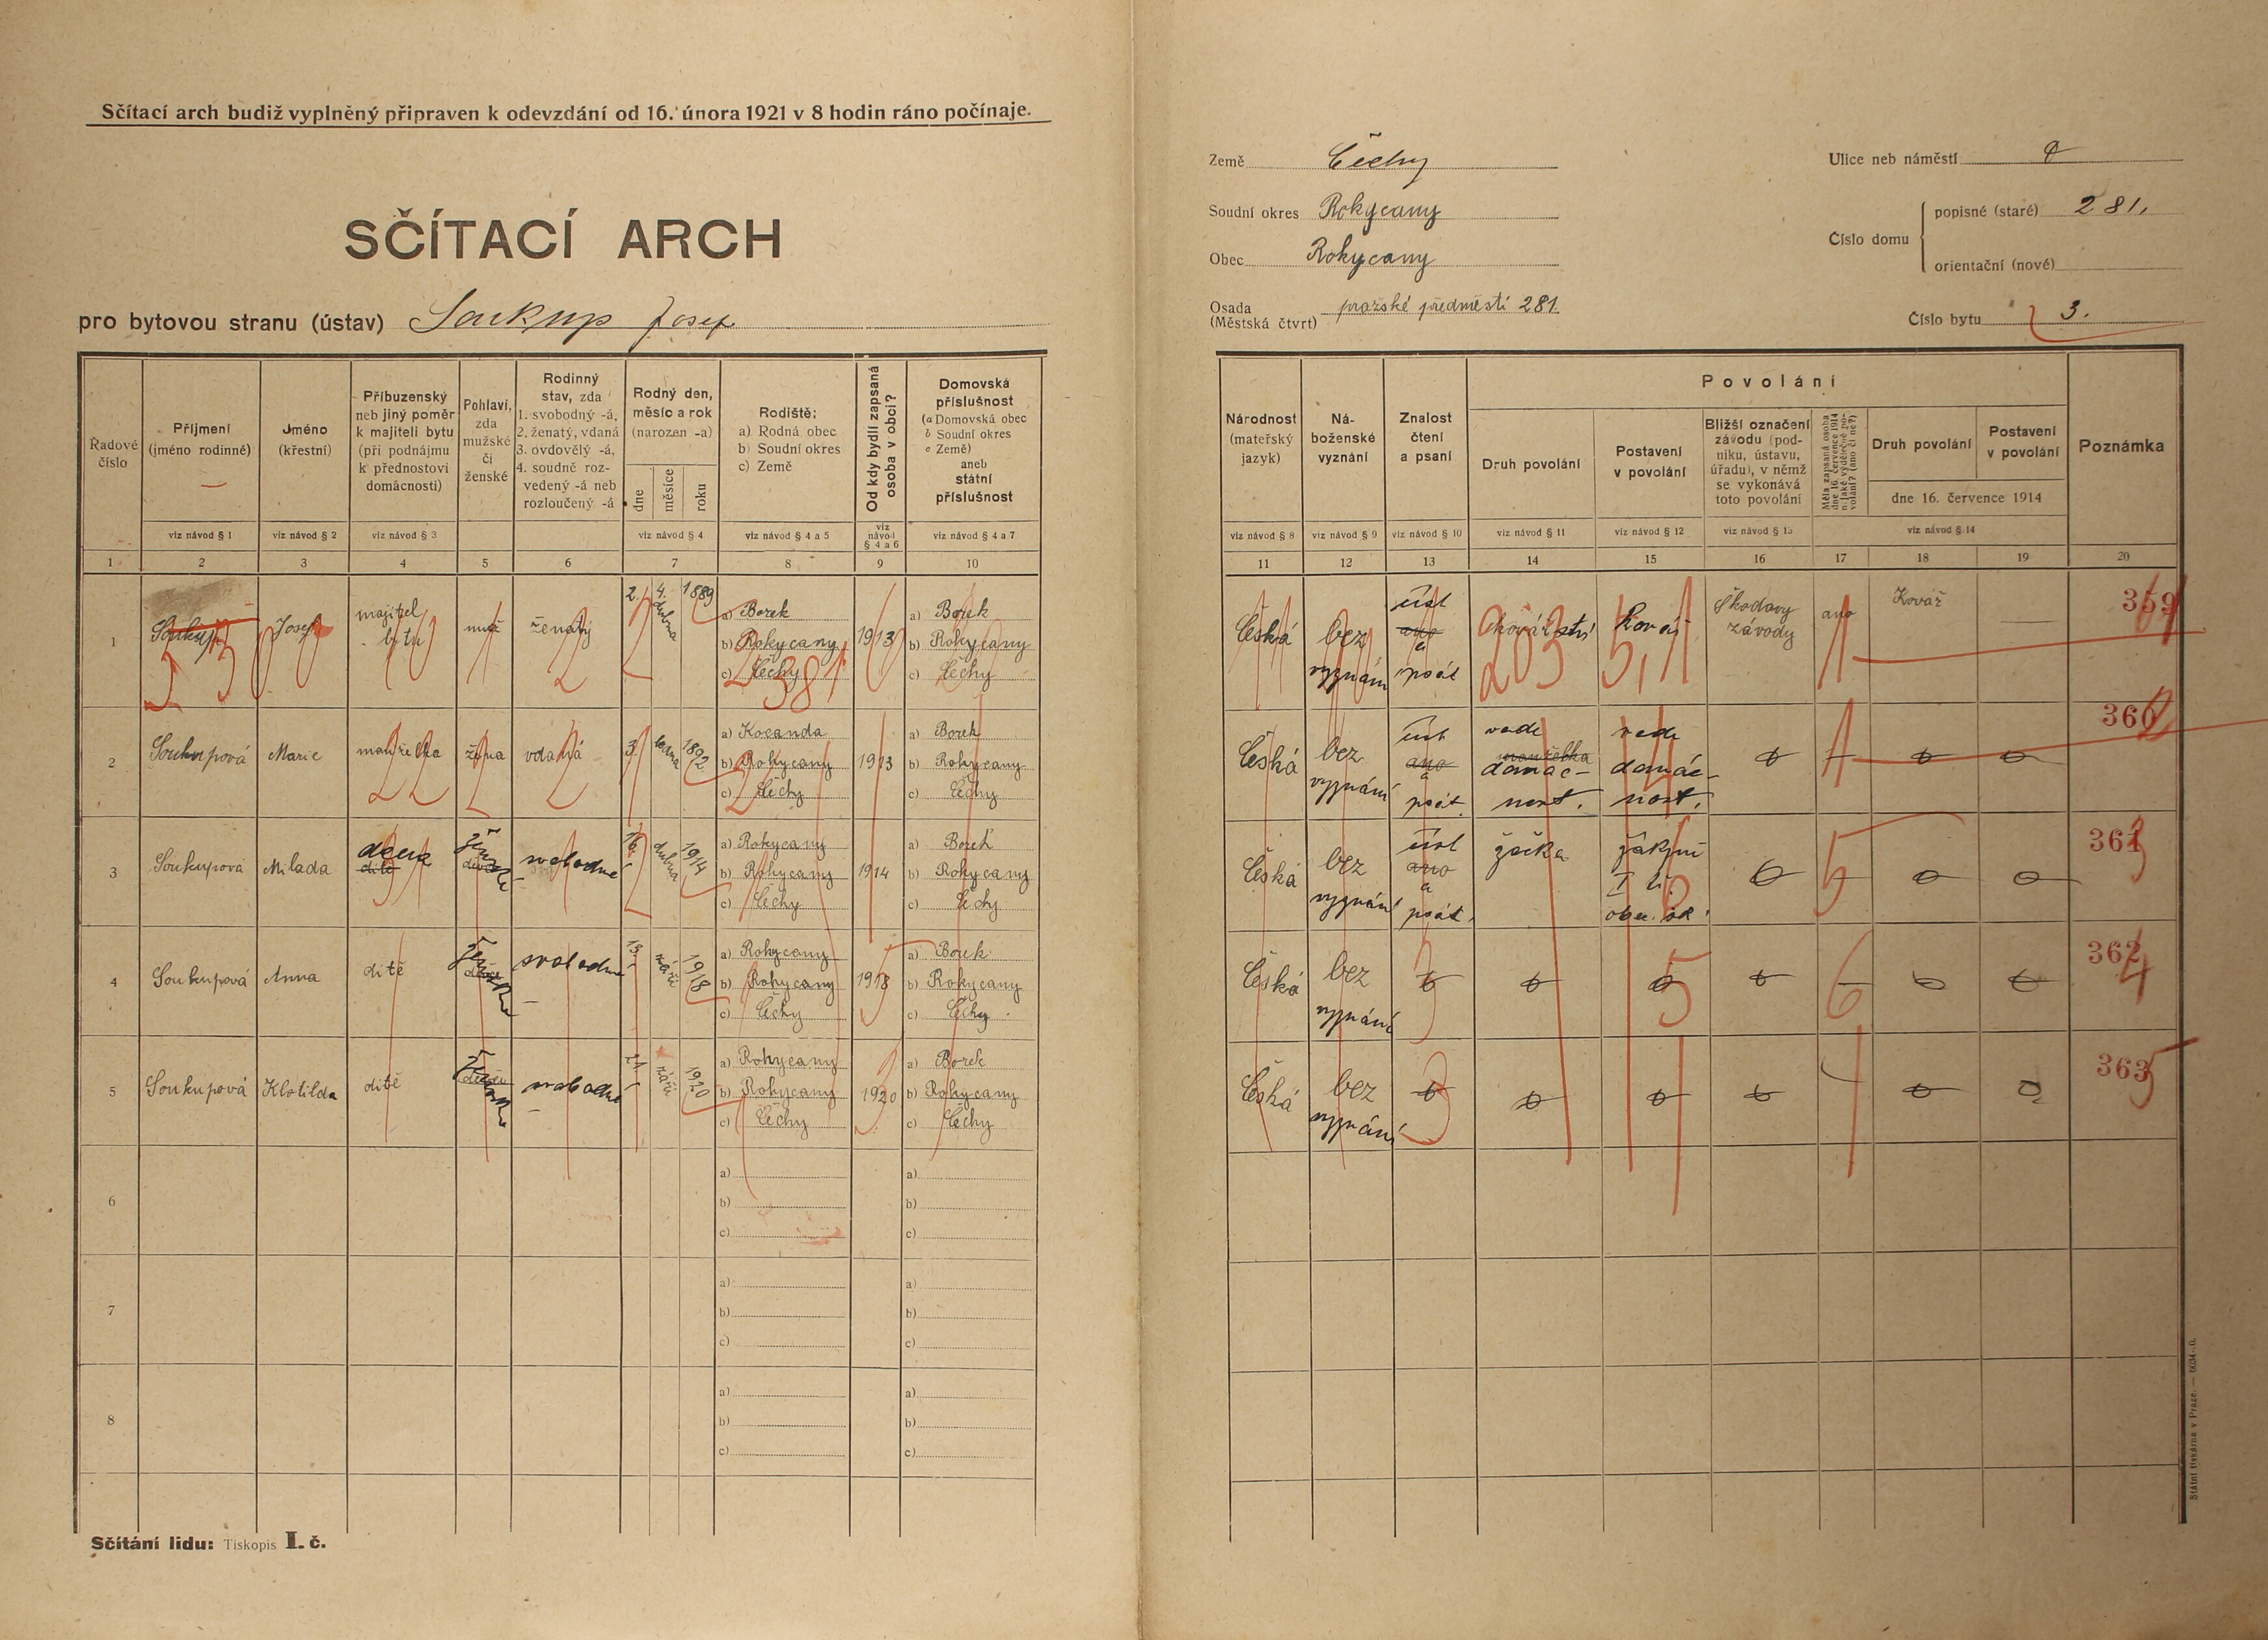 Sčítací arch budiž vyplněný připraven k odevzdání od 16. února 1921 v 8 hodin ráno počínaje.
SČÍTACÍ ARCH
pro bytovou stranu (ústav) Soukup Josef
Země Čechy
Soudní okres Rokycany
Obec Rokycany
Osada (Městská čtvrt) pražské předměstí 281.
Ulice neb náměstí
Číslo domu
popisné (staré) 281.
orientační (nové)
Číslo bytu 3.
Řadové číslo
Příjmení (jméno rodinné)
Jméno (křestní)
Příbuzenský neb jiný poměr k majiteli bytu (při podnájmu k přednostovi domácnosti)
Pohlaví, zda mužské či ženské
Rodinný stav, zda 1. svobodný -á, 2. ženatý, vdaná 3. ovdovělý -á, 4. soudně rozvedený -á neb rozloučený -á
Rodný den, měsíc a rok (narozen -a)
dne měsíce roku
Rodiště: a) Rodná obec b) Soudní okres c) Země
Od kdy bydlí zapsaná osoba v obci?
Domovská příslušnost (a Domovská obec b Soudní okres c Země) aneb státní příslušnost
viz návod § 1 viz návod § 2 viz návod § 3 viz návod § 4 viz návod § 4 a 5 viz návod § 4 a 6 viz návod § 4 a 7
1 2 3 4 5 6 7 8 9 10
Národnost (mateřský jazyk)
Náboženské vyznání
Znalost čtení a psaní
Povolání
Druh povolání
Postavení v povolání
Bližší označení závodu (podniku, ústavu, úřadu), v němž se vykonává toto povolání
Měla zapsaná osoba dne 16. července 1914 nějaké výdělečné povolání? (ano či ne?)
Druh povolání
Postavení v povolání
dne 16. července 1914
Poznámka
viz návod § 8 viz návod § 9 viz návod § 10 viz návod § 11 viz návod § 12 viz návod § 13 viz návod § 14
11 12 13 14 15 16 17 18 19 20
1 Soukup Josef majitel bytu muž ženatý 2. 4. dubna 1889 a) Borek b) Rokycany c) Čechy 1913 a) Borek b) Rokycany c) Čechy
Česká bez vyznání číst ano a psát kovářství kovář Škodovy závody ano Kovář 359
2 Soukupová Marie manželka žena vdaná 3. ledna 1892 a) Kocanda b) Rokycany c) Čechy 1913 a) Borek b) Rokycany c) Čechy
Česká bez vyznání číst ano a psát vede manželka domácnost. vede domácnost. 360
3 Soukupová Milada dcera dítě svobodná 16 dubna 1914 a) Rokycany b) Rokycany c) Čechy 1914 a) Borek b) Rokycany c) Čechy
Česká bez vyznání číst ano a psát. žačka I. 361
4 Soukupová Anna dítě svobodná 13 září 1918 a) Rokycany b) Rokycany c) Čechy 1918 a) Borek b) Rokycany c) Čechy
Česká bez vyznání 362
5 Soukupová Klotilda dítě svobodná 21 září 1920 a) Rokycany b) Rokycany c) Čechy 1920 a) Borek b) Rokycany c) Čechy
Česká bez vyznání 363
6 a) b) c) a) b) c)
7 a) b) c) a) b) c)
8 a) b) c) a) b) c)
Sčítání lidu: Tiskopis I. č.
Státní tiskárna v Praze. — 6034-0.